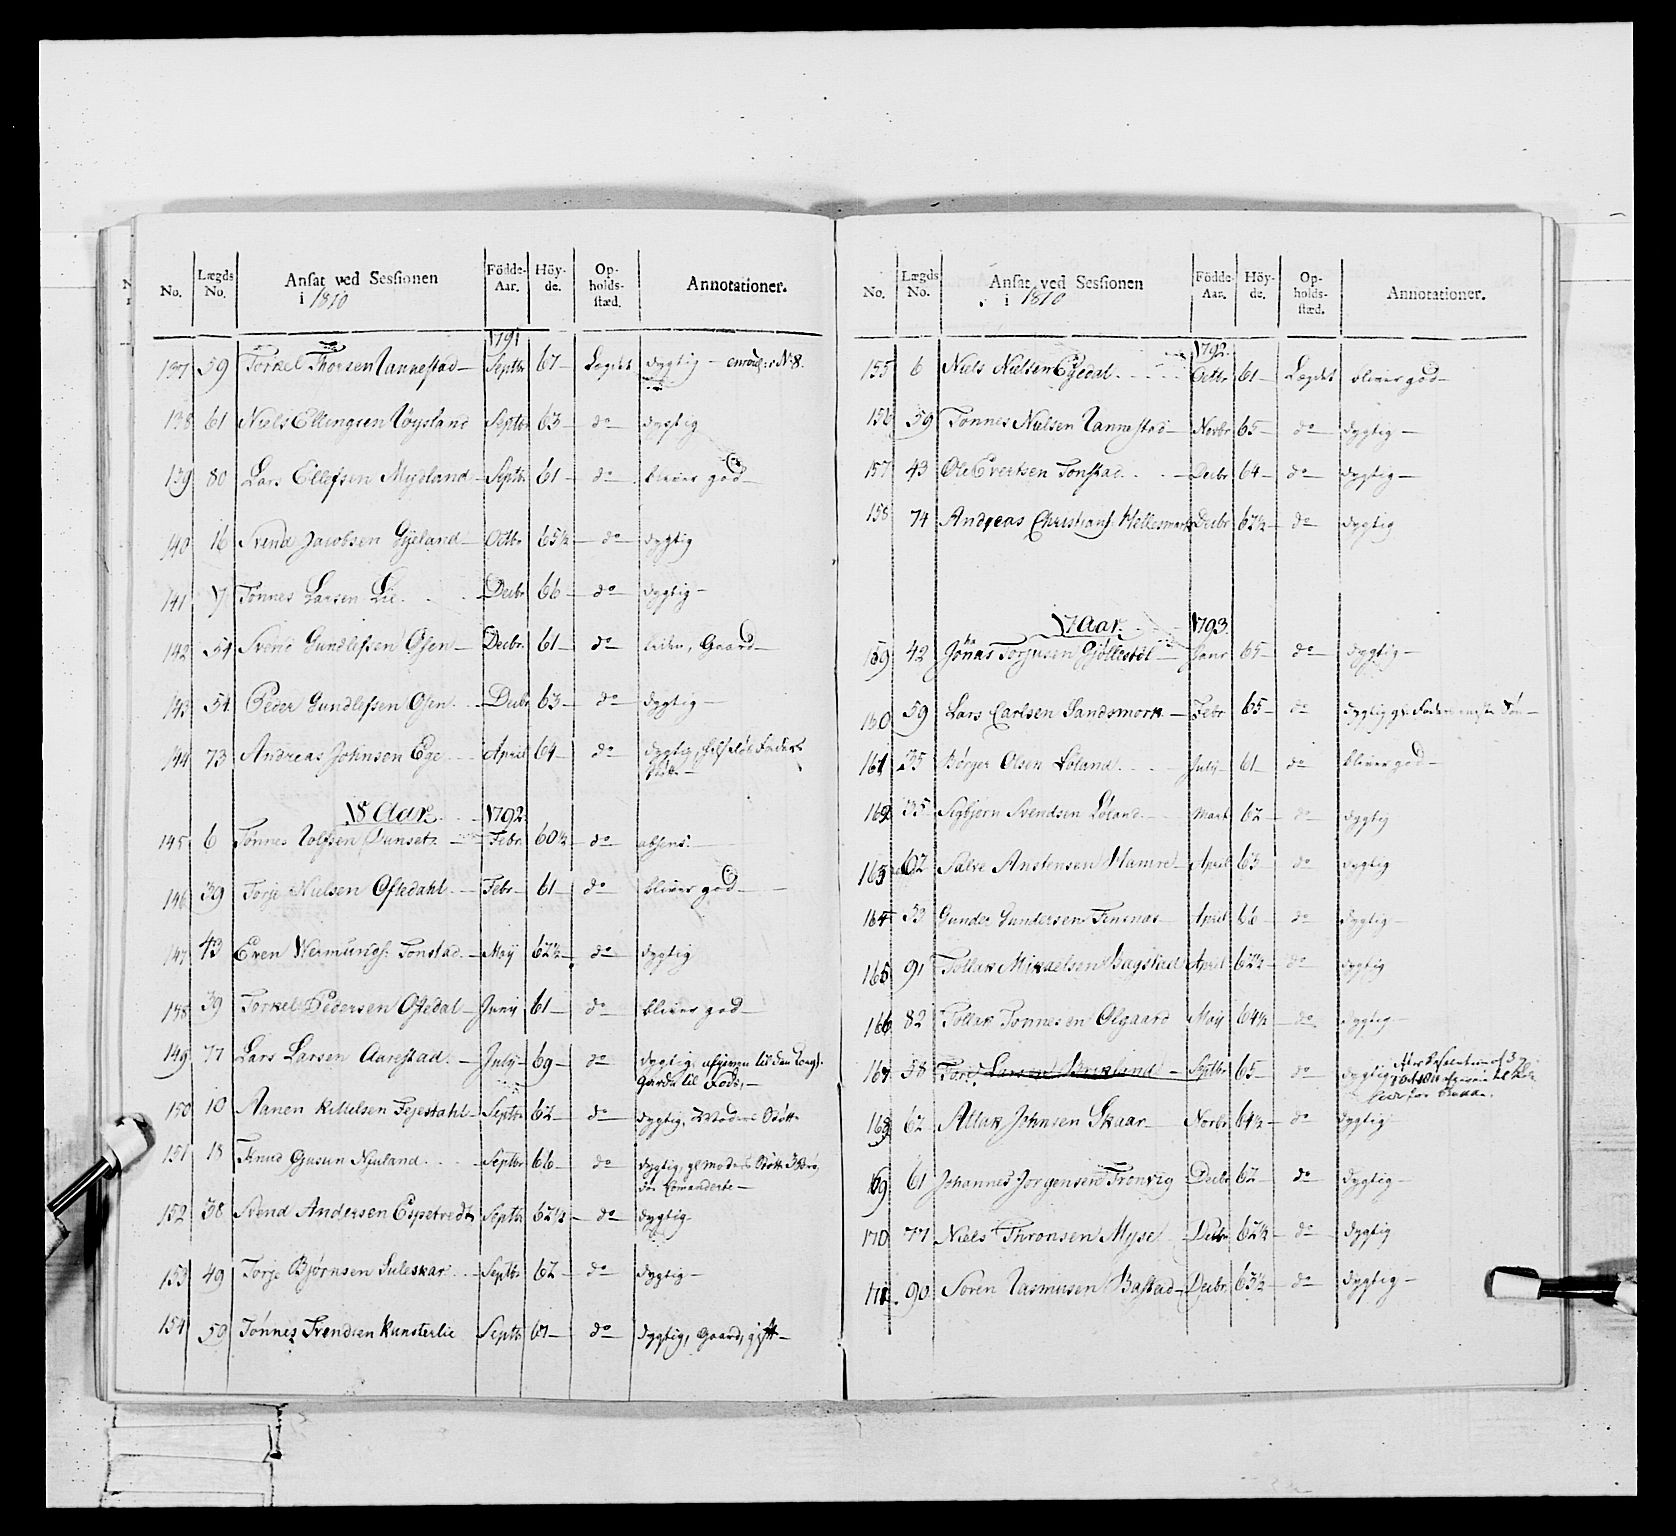 No. Lægds No. Ansat ved Sessionen i 1810 Födde-Aar. Höy-de. Op-holds-stæd. Annotationer.
1791
137 59 Torkel Thorsen Vannestad Septbr 67 Legdet dygtig
138 61 Niels Ellingsen Röysland Septbr 63 do dygtig
139 80 Lars Ellefsen Mydland Septbr 61 do bliver god
140 16 Svend Jacobsen Gyeland Octbr 65½ do dygtig
141 Tönnes Larsen Lie Decbr 66 do dygtig
142 54 Svend Gundlefsen Osen Decbr 61 do liden, Gaard
143 54 Peder Gundlefsen Osen Decbr 63 do dygtig
144 73 Andreas Johnsen Ege April 64 do dygtig,
18 Aar. 1792
145 6 Tønnes Rolfsen Febr 60½ do absens
146 39 Torje Nielsen Oftedahl Febr 61 do bliver god
147 43 Even Wermunds. Tonstad May 62½ do dygtig
148 39 Torkel Pedersen Oftedal Juny 61 do bliver god
149 77 Lars Larsen Aarestad July 69 do dygtig, afgiven til den
Garde til Fods,
150 10 Aanen Kittelsen Fejestahl Septbr 62 do dygtig, Moders Stötte
151 18 Knud Septbr 66 do dygtig, Moders Stötte
152 38 Svend Andersen Espetvedt Septbr 62½ do dygtig
153 49 Torje Bjørnsen Suleskar Septbr 62 do dygtig
154 59 Tønnes Svendsen Kunsterlie Septbr 67 do dygtig, Gaard, gift
No. Lægds No. Ansat ved Sessionen i 1810 Födde-Aar. Höy-de. Op-holds-stæd. Annotationer.
1792
155 6 Niels Nielsen Egedal Octbr 61 Legdet bliver god
156 59 Tønnes Nielsen Vannestad Novbr 65 do dygtig
157 43 Ole Evertsen Tonstad Decbr 64 do dygtig
158 74 Andreas Christians. Decbr 62½ do dygtig
17 Aar. 1793
159 42 Jonas Torjusen Gjøllestøl Janr 65 do dygtig
160 59 Lars Carlsen Sandsmork Febr 65 do dygtig
161 35 Børger Olsen Løland July 61 do bliver god
162 35 Sigbjørn Svendsen Løland Mart 62 do dygtig
163 62 Salve Anstensen Hamre April 63 do dygtig
164 Gunder Gundersen Finsnæs April 66 do dygtig
165 91 Tollak Mikaelsen Bagstad April 62½ do dygtig
166 82 Tollak Tønnesen Algaard May 64½ do dygtig
167 58 Tore Larsen Birkeland Septbr 65 do dygtig
168 62 Aslak Johnsen Skaar Novbr 64½ do dygtig
169 61 Johannes Jörgensen Tronvig Decbr 62 do dygtig
170 77 Niels Thronsen Myse Decbr 62½ do dygtig
171 90 Soren Rasmusen Bastad Decbr 63½ do dygtig